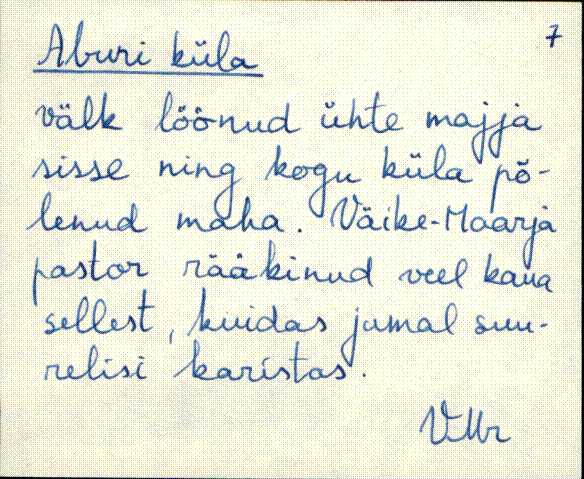 7
Aburi küla
välk löönud ühte majja
sisse ning kogu küla põ-
lenud maha. Väike-Maarja
pastor rääkinud veel kaua
sellest, kuidas jumal suu-
relisi karistas.
VMr